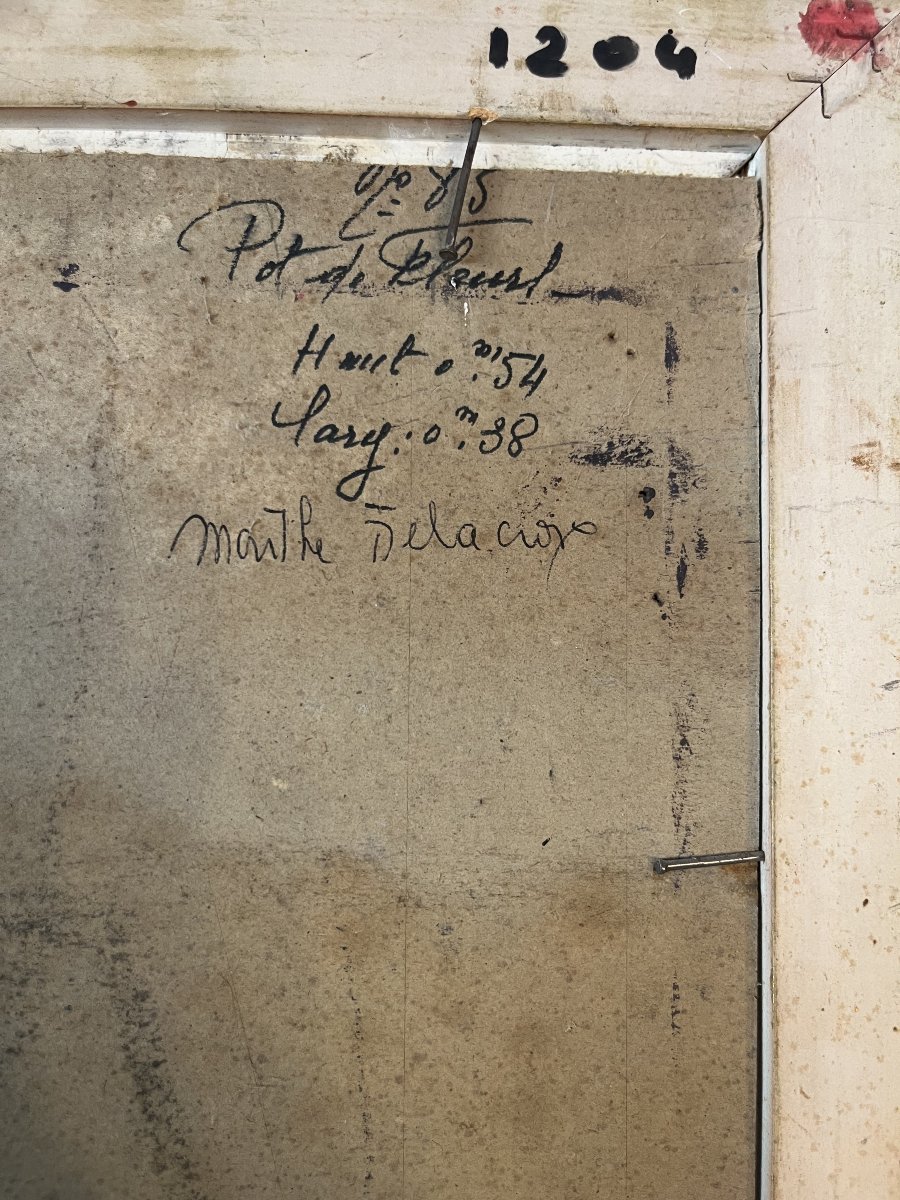 1204
No 85
Pot de Fleurs
Haut 0.m54
Larg. 0.m38
Marthe Delacroix